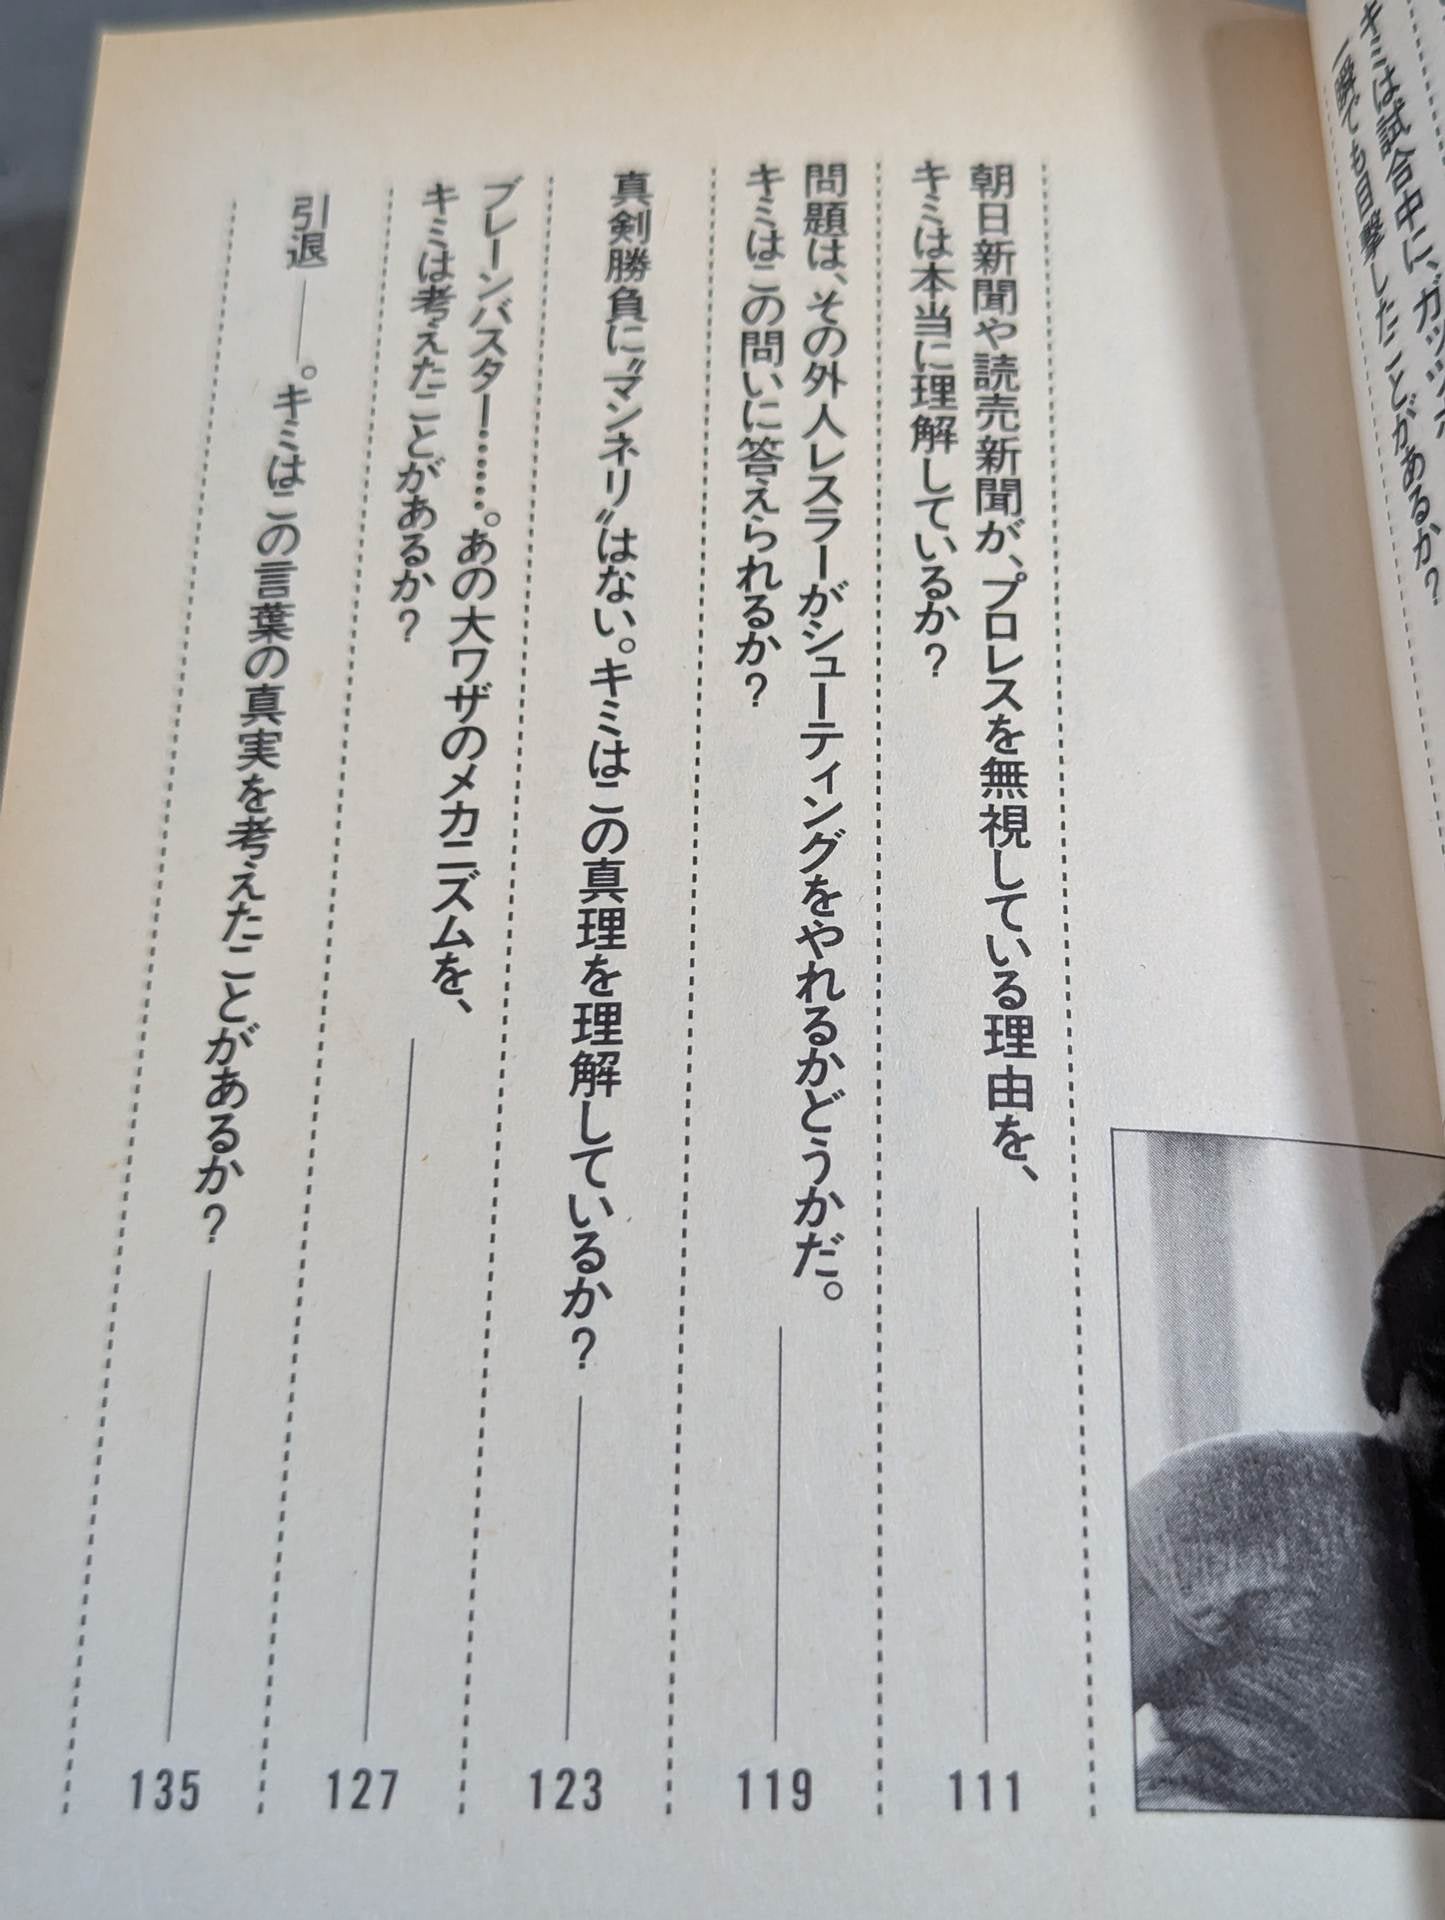 キミは試合中に、ガッツポ
一瞬でも目撃したことがあるか？
朝日新聞や読売新聞が、プロレスを無視している理由を、
キミは本当に理解しているか？
111
問題は、その外人レスラーがシューティングをやれるかどうかだ。
キミはこの問いに答えられるか？
119
真剣勝負に〝マンネリ〟はない。キミはこの真理を理解しているか？
123
ブレーンバスター……。あの大ワザのメカニズムを、
キミは考えたことがあるか？
127
引退――。キミはこの言葉の真実を考えたことがあるか？
135